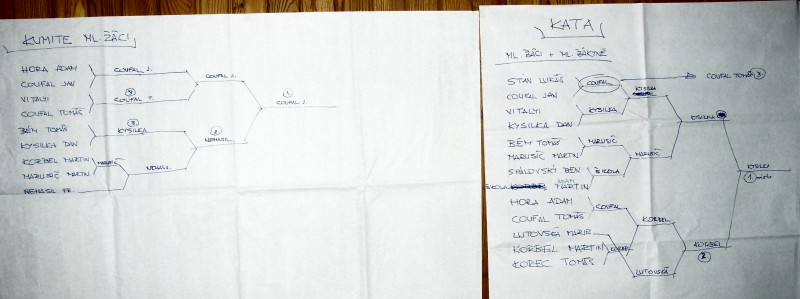 KUMITE ML. ŽÁCI
HORA ADAM
COUFAL JAN
VITALYI
COUFAL TOMÁŠ
BÉM TOMÁŠ
KYSILKA DAN
KORBEL MARTIN
MARUSIČ MARTIN
NEHASIL
COUFAL J.
COUFAL T.
3
3
KYSILKA
MARUSIČ
NEHASIL
COUFAL J.
2
NEHASIL
1
COUFAL J.
KATA
ML. ŽÁCI + ML. ŽÁKYNĚ
STAN LUKÁŠ
COUFAL JAN
VITALYI
KYSILKA DAN
BÉM TOMÁŠ
MARUSIČ MARTIN
BEN
ADAM
MARTIN
HORA ADAM
COUFAL TOMÁŠ
LUTOVSKÁ
KORBEL MARTIN
KOREC TOMÁŠ
COUFAL
KYSILKA
MARUSIČ
ŠKODA
COUFAL
KORBEL
KYSILKA
MARUSIČ
KORBEL
LUTOVSKÁ
COUFAL TOMÁŠ 3
KYSILKA
KORBEL
2
KYSILKA
1 místo